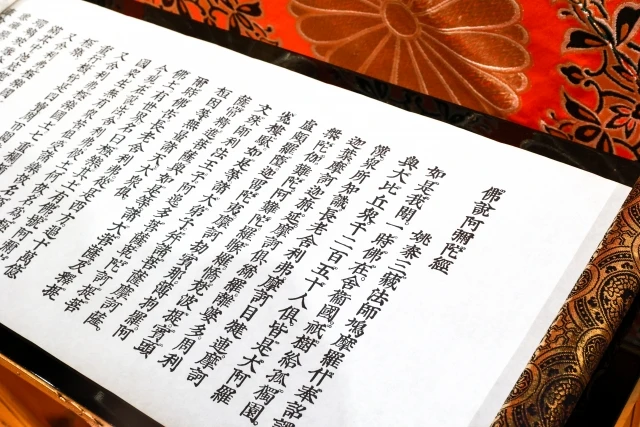 佛說阿彌陀經
姚秦三藏法師鳩摩羅什奉詔譯
如是我聞一時佛在舍衞國祇樹給孤獨園
與大比丘衆千二百五十人俱皆是大阿羅
漢衆所知識長老舍利弗摩訶目犍連摩訶
迦葉摩訶迦旃延摩訶俱絺羅離婆多周利
槃陀伽難陀阿難陀羅睺羅憍梵波提賓頭
盧頗羅墮迦留陀夷摩訶劫賓那薄拘羅阿
㝹樓駄如是等諸大弟子幷諸菩薩摩訶薩
文殊師利法王子阿逸多菩薩乾陀訶提菩
薩常精進菩薩與如是等諸大菩薩及釋提
桓因等無量諸天大衆俱
爾時佛告長老舍利弗從是西方過十萬億
佛土有世界名曰極樂其土有佛號阿彌陀
今現在說法舍利弗彼土何故名爲極樂其
國衆生無有衆苦但受諸樂故名極樂
又舍利弗極樂國土七重欄楯